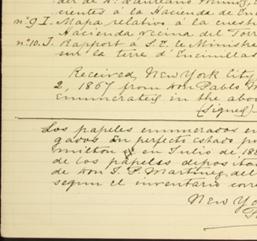 der de D. Aureliano
cuentes á la Hacienda de En
nº 9 I. Mapa relativo á la cuest
Hacienda vecina del Torr
nº 10. I. Rapport a S.E. le Ministre
sur la terre d'Encinillas
Received, New York City
2, 1867 from Don Pablo M
enumerated in the abo
(Signed)
Los papeles enumerados en
gados en perfecto estado p
en Julio de 18
de los papeles depositad
de Don J. P. Martinez, del
segun el inventario
New Yo